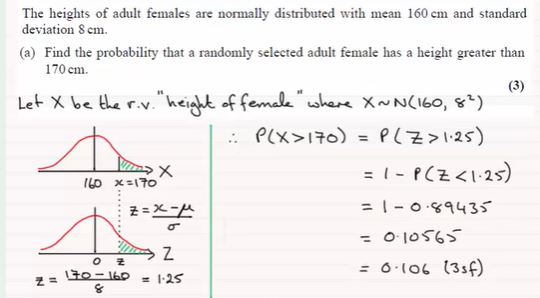 The heights of adult females are normally distributed with mean 160 cm and standard
deviation 8 cm.
(a) Find the probability that a randomly selected adult female has a height greater than
170 cm.
(3)
Let X be the r.v. "height of female" where X ~ N(160, 8²)
X
160 x=170
z = (x-μ)/σ
Z
0 z
z = (170-160)/8 = 1.25
∴ P(X>170) = P(Z>1.25)
= 1 - P(Z<1.25)
= 1 - 0.89435
= 0.10565
= 0.106 (3sf)